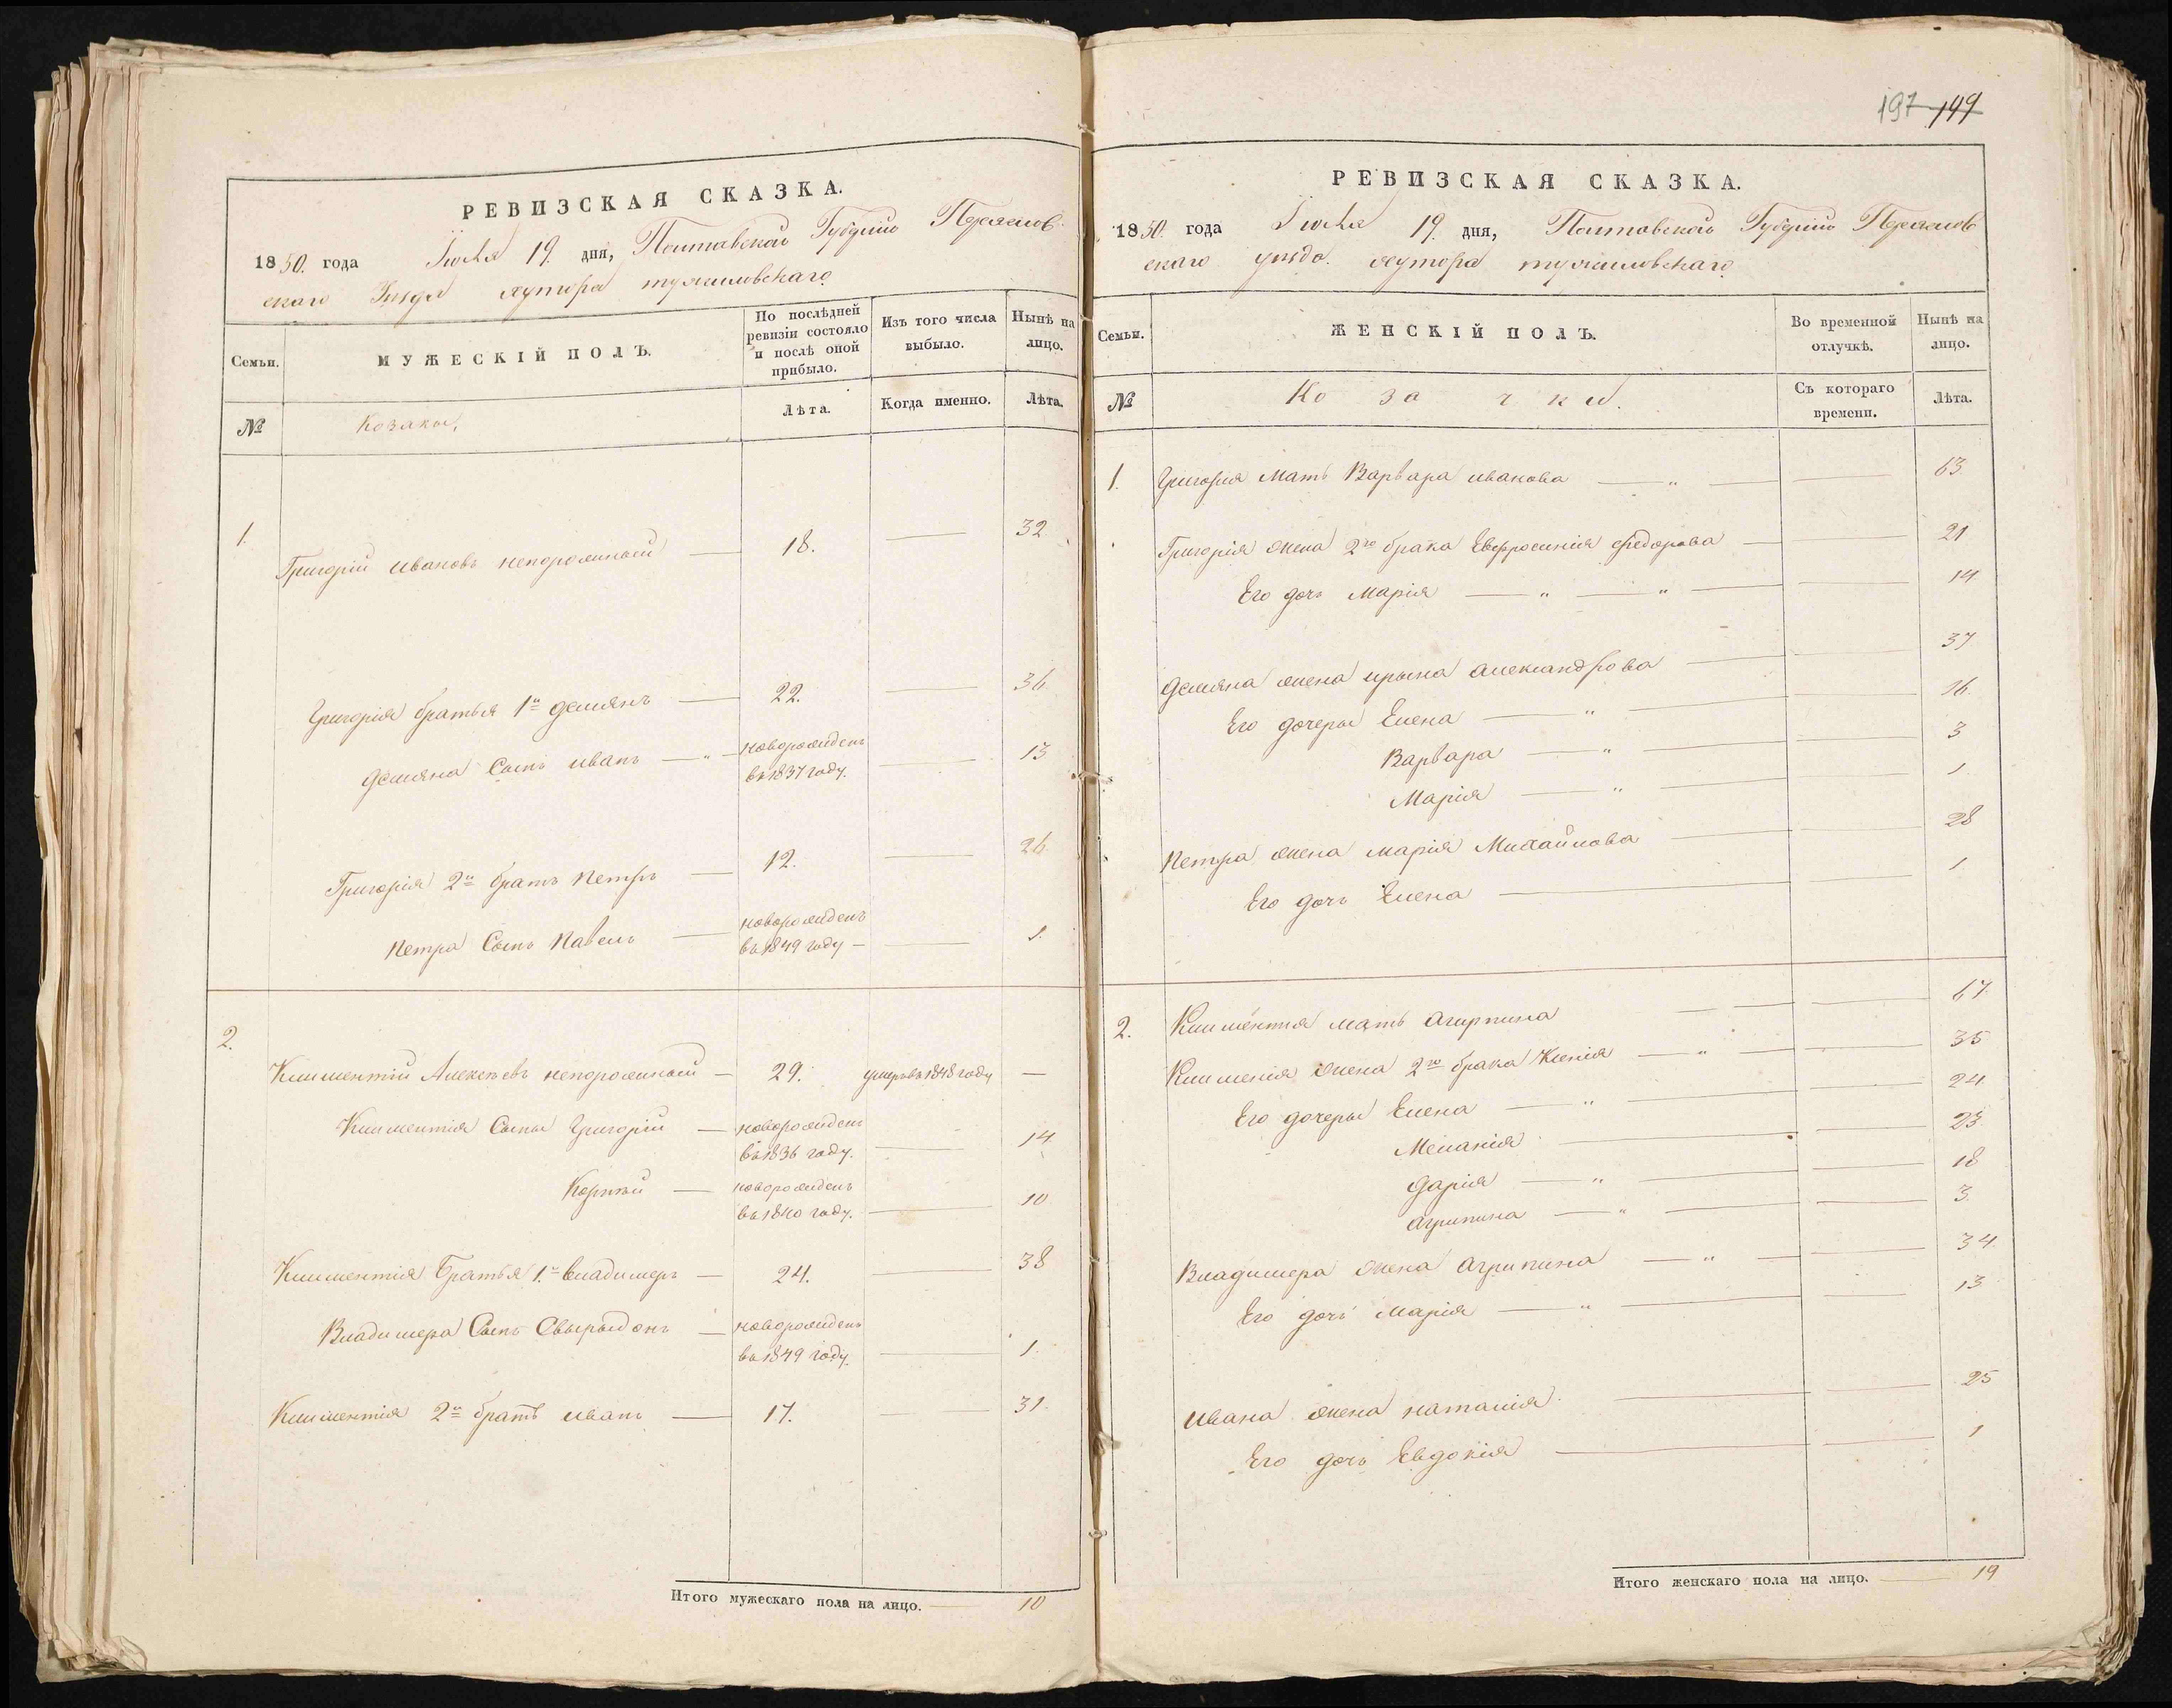 РЕВИЗСКАЯ СКАЗКА.
1850. года Июля 19. дня, Полтавской Губерніи Переяслов-
скаго Уезда хутора
Семьи.
МУЖЕСКІЙ ПОЛЪ.
По послѣдней ревизіи состояло и послѣ оной прибыло.
Изъ того числа выбыло.
Нынѣ на лицо.
№
Козаки.
Лѣта.
Когда именно.
Лѣта.
1. Григорій Ивановъ непорожный — 18. — 32
Григорія братья 1й Демянъ — 22. — 36
Демяна Сынъ Иванъ — " — новорожденъ въ 1837 году. — 13
Григорія 2й братъ Петръ — 12. — 26
Петра Сынъ Павелъ — новорожденъ въ 1849 году — 1.
2. Климентій Алексѣевъ непорожный — 29. умеръ въ 1848 году —
Климентія Сыны Григорій — новорожденъ въ 1836 году. — 14
Корнѣй — новорожденъ въ 1840 году. — 10
Климентія Братья 1й Владимеръ — 24. — 38
Владимера Сынъ Свырыдонъ — новорожденъ въ 1849 году. — 1.
Климентія 2й братъ Иванъ — 17. — 31
Итого мужескаго пола на лицо. — 10
197 199
РЕВИЗСКАЯ СКАЗКА.
1850. года Июля 19. дня, Полтавской Губерніи Переяслов
скаго уезда. хутора
Семьи.
ЖЕНСКІЙ ПОЛЪ.
Во временной отлучкѣ.
Нынѣ на лицо.
№
Козачки.
Съ котораго времени.
Лѣта.
1. Григорія Мать Варвара иванова — " — 63
Григорія жена 2го брака Евфросинія федорова — 21
Его дочь Марія — " — " — 14
Демяна жена ирына Александрова — 37
Его дочеры Елена — " — 16.
Варвара — " — 3
Марія — " — 1
Петра жена марія Михайлова — 28
Его дочь Елена — 1
2. Климентія мать Агрипина — 67.
Клименія жена 2го брака Ксенія — " — 35
Его дочеры Елена — " — 24
Меланія — 23
Дарія — " — 18
Агрипина — " — 3
Владимера жена Агрипина — " — 34
Его дочь Марія — " — 13
Ивана жена наталія — 25
Его дочь Евдокія — 1
Итого женскаго пола на лицо. — 19